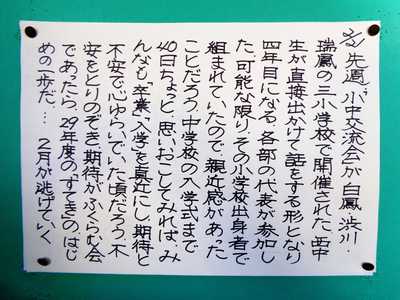 2/ 先週、小中交流会が白鳳、渋川、
瑞鳳の三小学校で開催された。西中
生が直接出かけて話をする形となり
四年目になる。各部の代表が参加し
た。可能な限り、その小学校出身者で
組まれていたので、親近感があった
ことだろう。中学校の入学式まで
40日ちょっと。思いおこしてみれば、み
んなも「卒業」「入学」を真近にし、期待と
不安で心ゆらいでいた頃だろう。不
安をとりのぞき、期待がふくらむ会
であったら、29年度の「すてき」のはじ
めの一歩だ… 2月が逃げていく